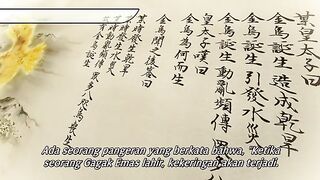 某皇太子曰
金烏誕生 造成乾旱
金烏誕生 引發水災
金烏誕生 動亂頻傳
皇太子嘆曰
金烏為何而生
金烏聞之後答曰
某時發生乾旱
某時發生水災
金烏誕生
Ada seorang pangeran yang berkata bahwa, "Ketika
seorang Gagak Emas lahir, kekeringan akan terjadi.